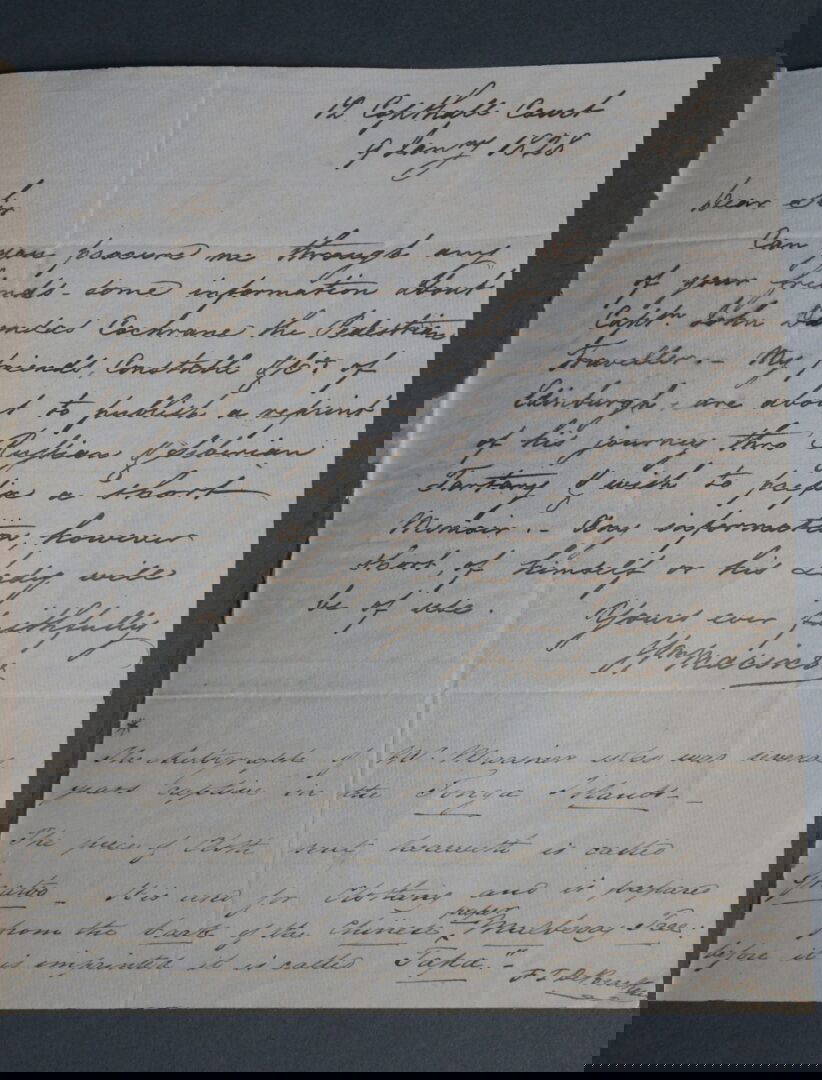 12 Copthall Court
9 Jany 1828
Dear Sir
Can you procure me through any
of your friends some information about
Captn. John Dundas Cochrane the Pedestrian
Traveller. - My friends, Constable & Co. of
Edinburgh are about to publish a reprint
of his journey thro' Russian & Siberian
Tartary & I wish to prefix a short
Memoir. - Any information, however
short, of himself or his lady will
be of use.
Yours ever faithfully
Wm Mariner
The Autograph of Mr. Mariner who was several
years captive in the Tonga Islands -
The piece of Cloth sent herewith is called
Gnatoo. It is used for Clothing and is prepared
from the bark of the Chinese paper Mulberry Tree.
before it is imprinted it is called Tapa."